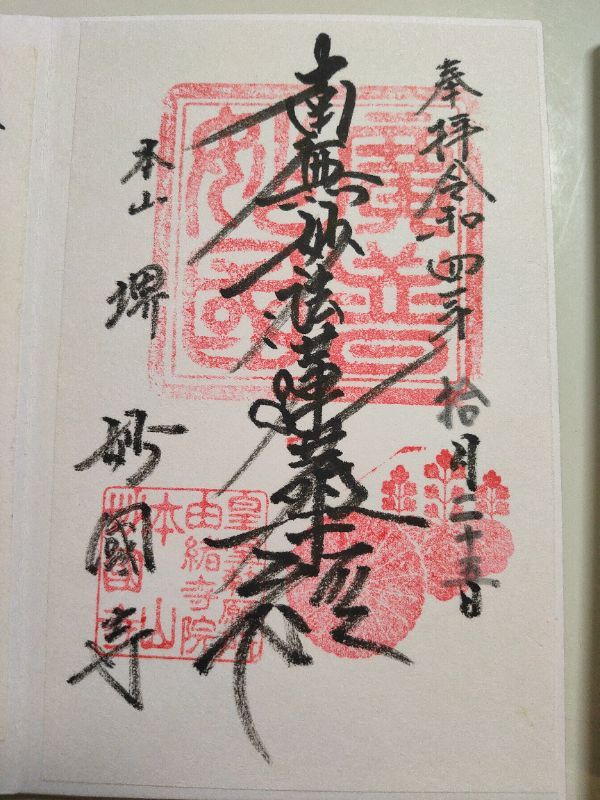 奉拝 令和四年 拾月二十五日
南無妙法蓮華経
本山 堺 妙國寺
廣普
妙國
由緒寺院
本山
妙國寺